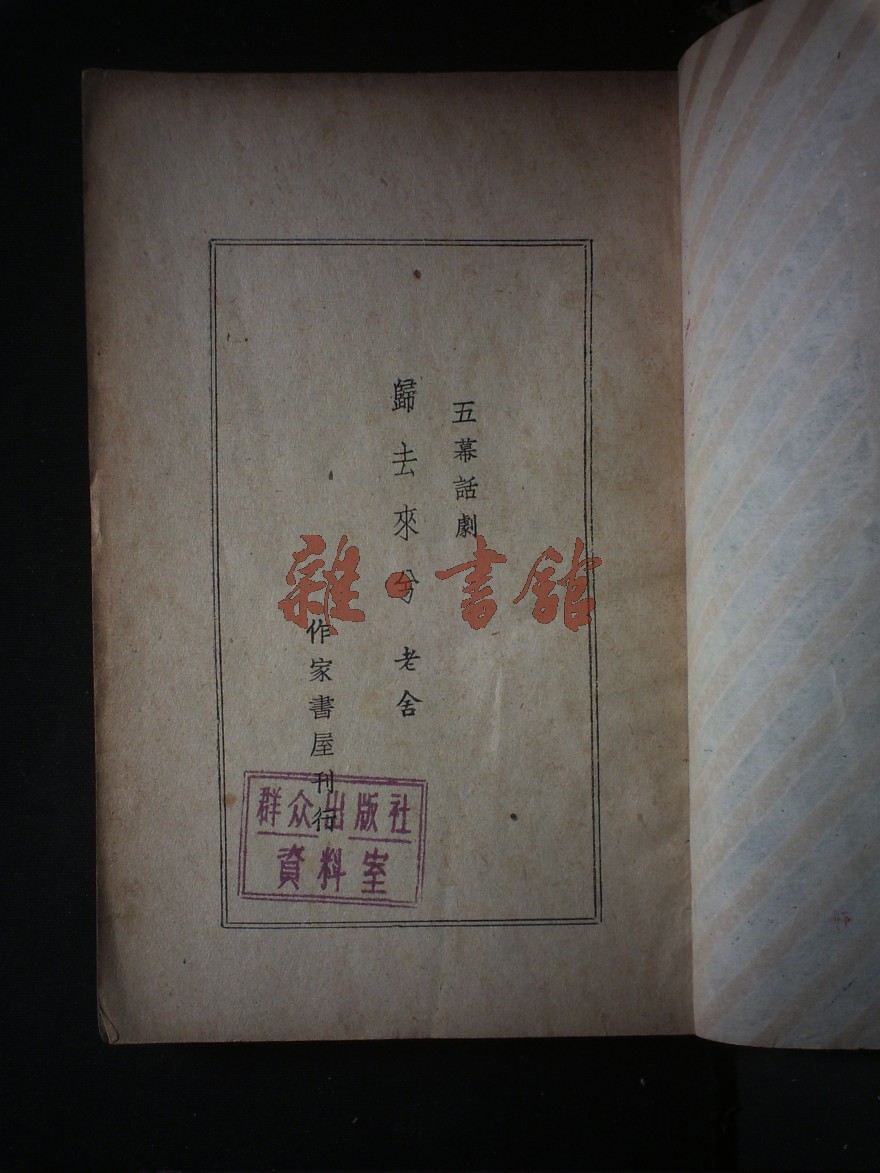 五幕話劇
歸去來兮 老舍
作家書屋刊行
雜·書館
群众出版社
資料室